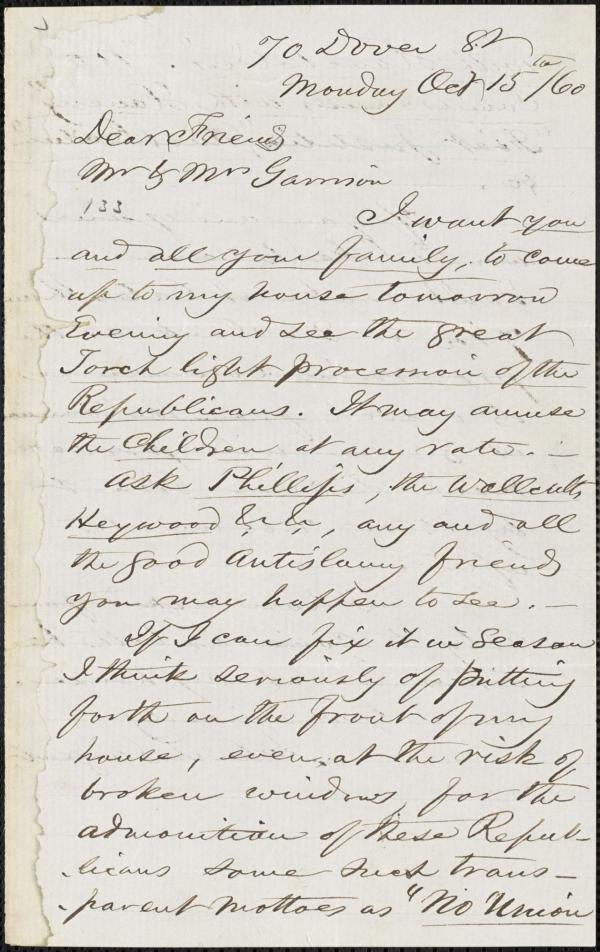 70 Dover St
Monday Oct 15th/60
Dear Friends
Mr & Mrs Garrison
133
I want you
and all your family, to come
up to my house tomorrow
Evening and see the great
Torch light procession of the
Republicans. It may amuse
the Children at any rate. —
Ask Phillips, the Wallcutts
Heywood &c &c, any and all
the good Antislavery friends
you may happen to see. —
If I can fix it in Season
I think seriously of putting
forth on the front of my
house, even at the risk of
broken windows, for the
admonition of these Repub-
licans some such trans-
parent mottoes as "No Union